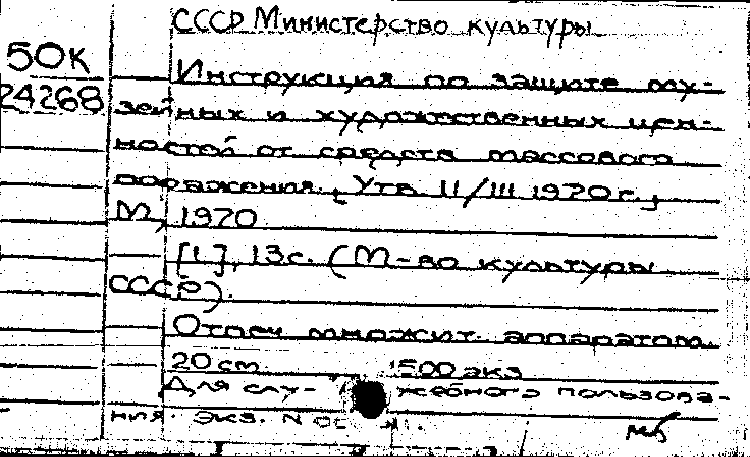 СССР Министерство культуры
50к
Инструкция по защите му-
24268
зейных и художественных цен-
ностей от средств массового
поражения. [Утв. 11/III 1970 г.]
М, 1970
[1], 13с. (М-во культуры
СССР).
Отпеч множит. аппаратом.
20 см 1500 экз
Для слу- жебного пользова-
ния. экз. N